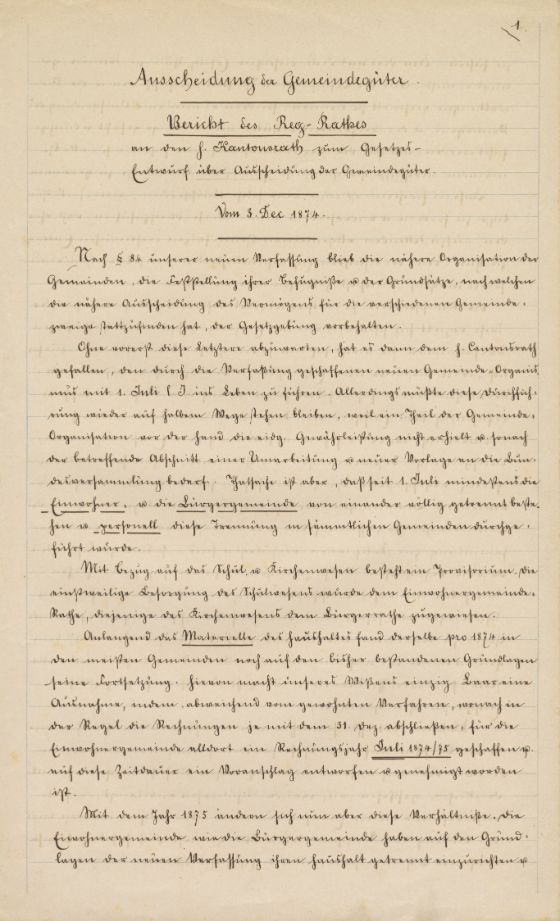 1.
Ausscheidung der Gemeindegüter.
Bericht des Reg-Rathes
an den h. Kantonsrath zum Gesetzes-
Entwurf über Ausscheidung der Gemeindegüter.
Vom 3. Dec 1874.
Nach § 84 unserer neuen Verfassung blieb die nähere Organisation der
Gemeinden, die Feststellung ihrer Befugniße u der Grundsätze, nach welchen
die nähere Ausscheidung des Vermögens für die verschiedenen Gemeinde-
zweige stattzufinden hat, der Gesetzgebung vorbehalten.
Ohne vorerst diese Letztere abzuwarten, hat es dann dem h. Cantonsrath
gefallen, den durch die Verfaßung geschaffenen neuen Gemeinde-Organis
mus mit 1. Juli l. J. ins Leben zu führen. Allerdings mußte diese Durchfüh-
rung wieder auf halbem Wege stehen bleiben, weil ein Theil der Gemeinde-
Organisation vor der Hand die eidg. Gewährleistung nicht erhielt u. sonach
der betreffende Abschnitt einer Umarbeitung u neuer Vorlage an die Bun-
desversammlung bedarf. Thatsache ist aber, daß seit 1. Juli mindestens die
Einwohner- u. die Bürgergemeinde von einander völlig getrennt beste-
hen u personell diese Trennung in sämmtlichen Gemeinden durchge-
führt wurde.
Mit Bezug auf das Schul- u. Kirchenwesen besteht ein Provisorium. Die
einstweilige Besorgung des Schulwesens wurde dem Einwohnergemeinde-
Rathe, diejenige des Kirchenwesens dem Bürgerrathe zugewiesen.
Anlangend das Materielle des Haushaltes fand derselbe pro 1874 in
den meisten Gemeinden noch auf den bisher bestandenen Grundlagen
seine Fortsetzung. Hievon macht unseres Wißens einzig Baar eine
Ausnahme, indem, abweichend vom gewohnten Verfahren, wonach in
der Regel die Rechnungen je mit dem 31. Dez. abschließen, für die
Einwohnergemeinde alldort ein Rechnungsjahr Juli 1874/75 geschaffen u.
auf diese Zeitdauer ein Voranschlag entworfen u genehmigt worden
ist.
Mit dem Jahr 1875 ändern sich nun aber diese Verhältniße. Die
Einwohnergemeinde wie die Bürgergemeinde haben auf den Grund-
lagen der neuen Verfassung ihren Haushalt getrennt einzurichten u